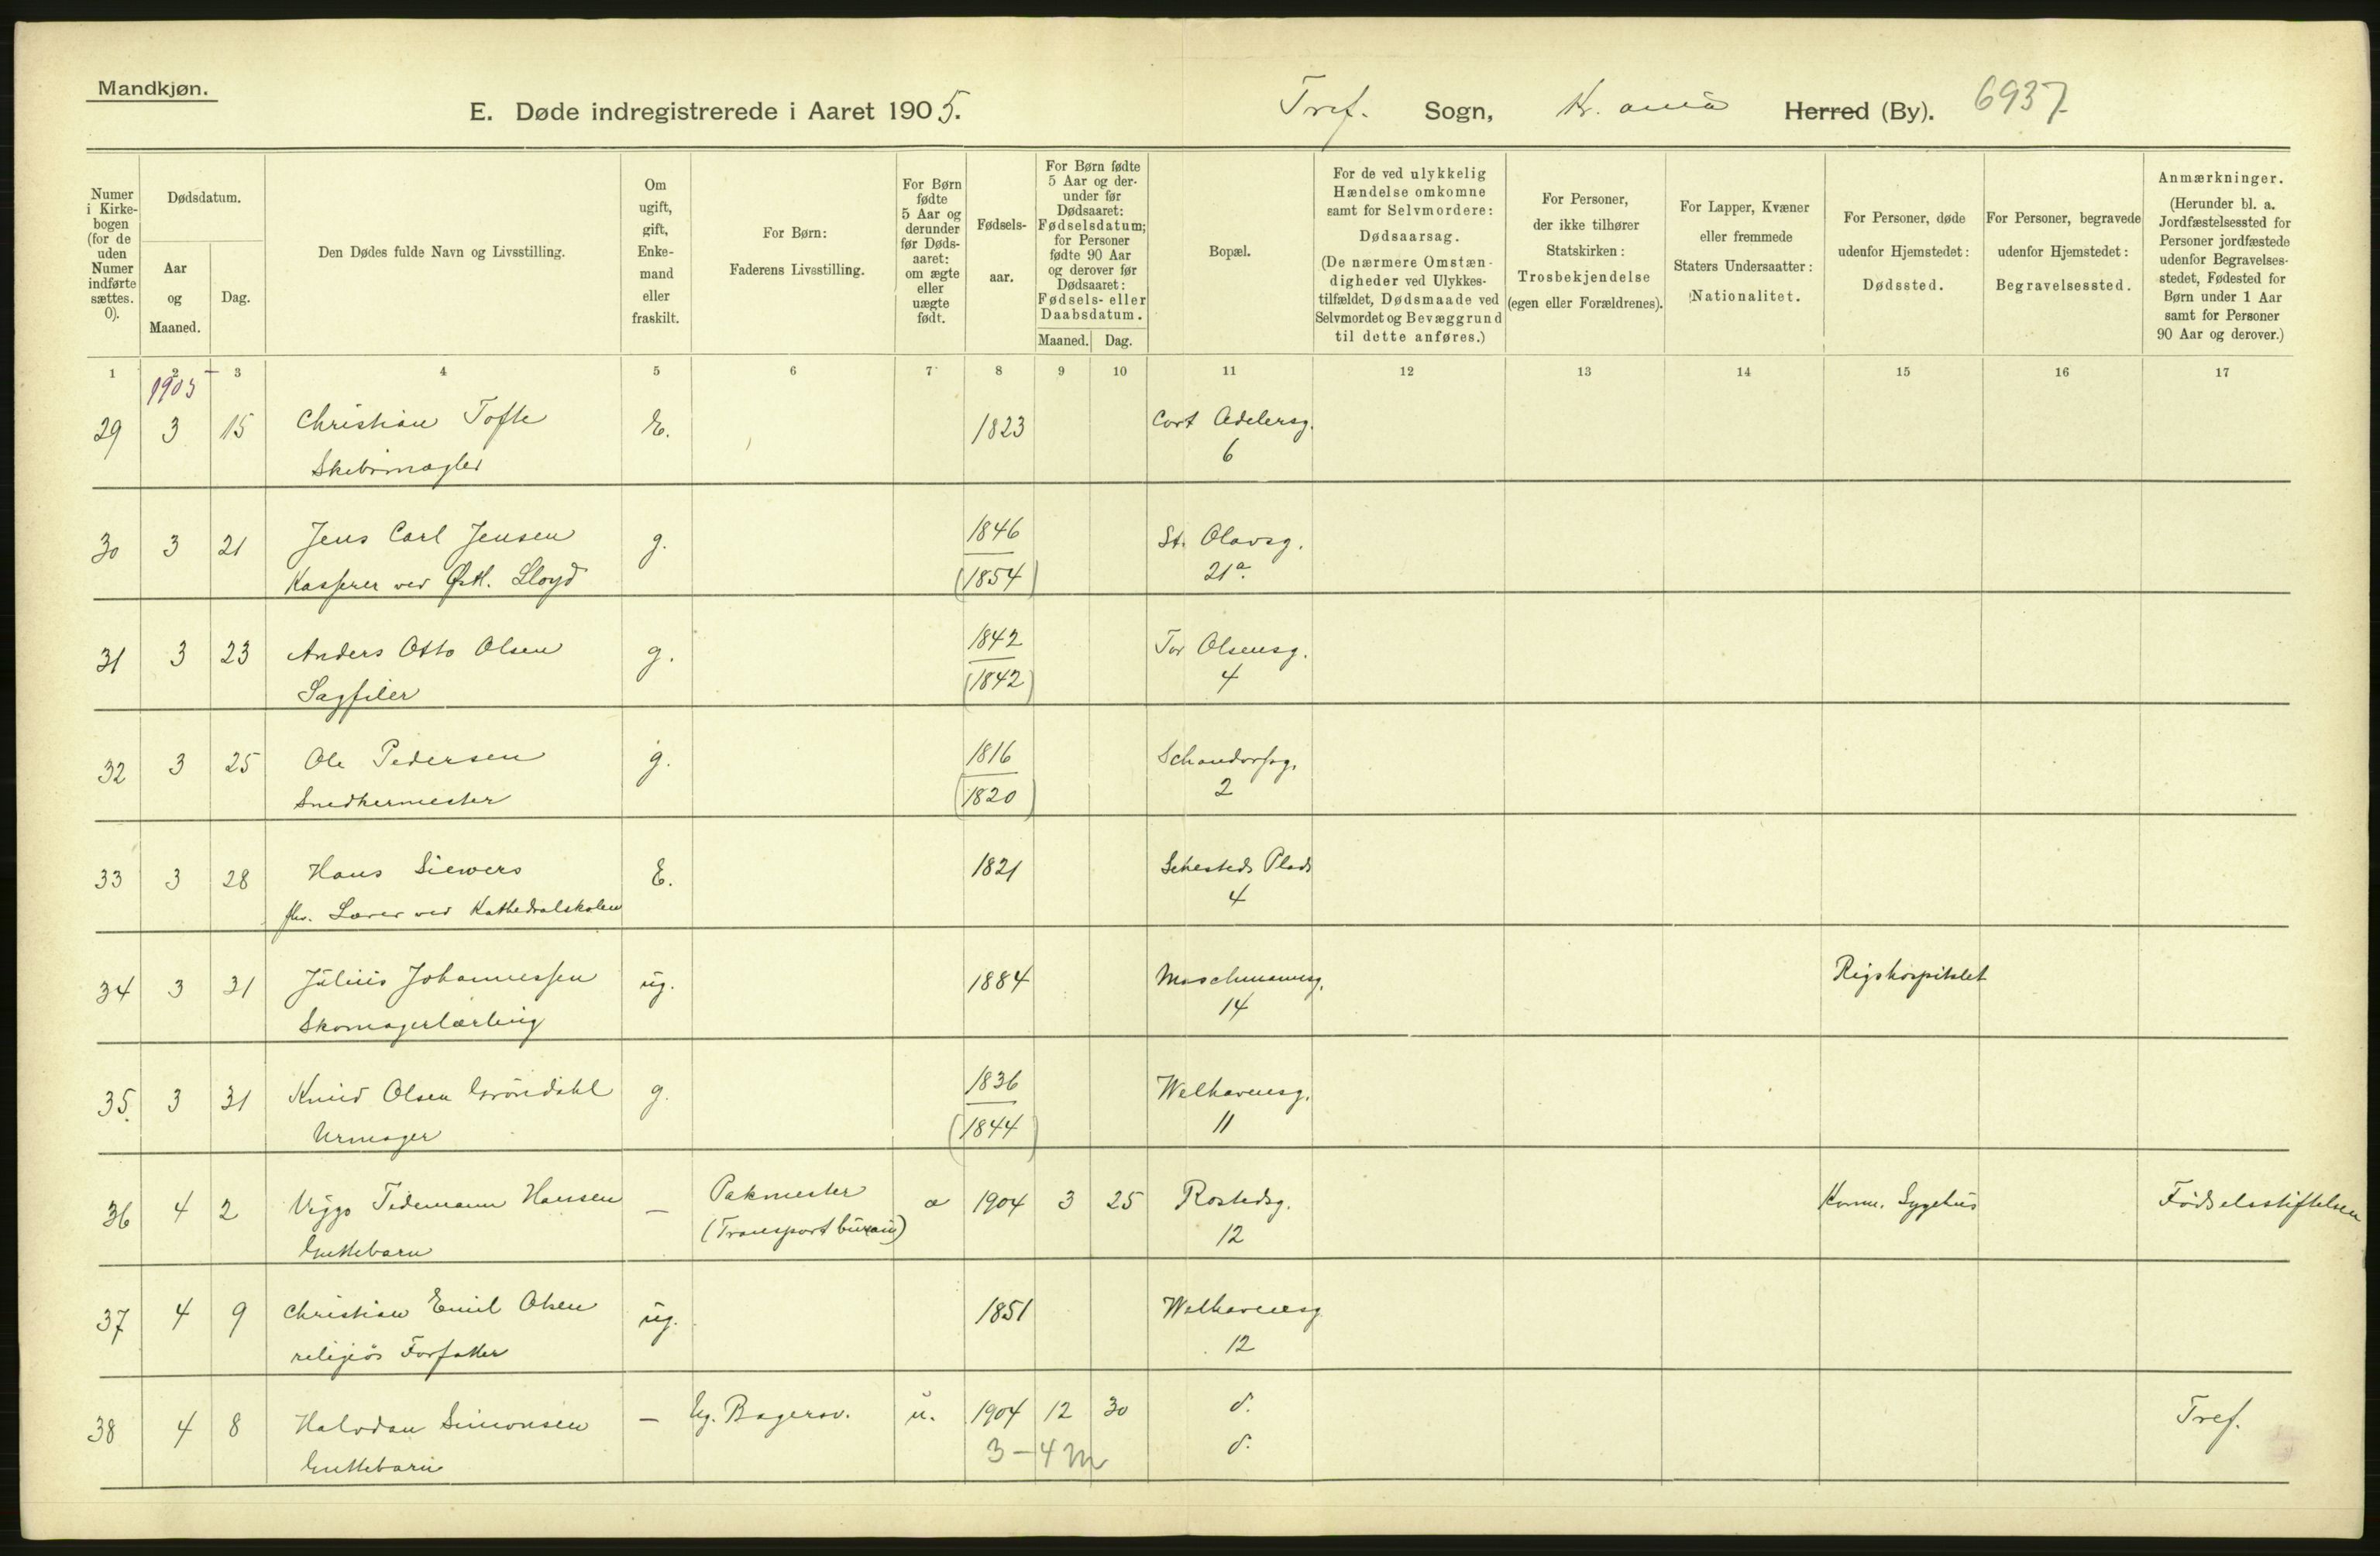 Mandkjøn.
E. Døde indregistrerede i Aaret 1905. Tref. Sogn, Kr.ania Herred (By). 6937.
Numer i Kirkebogen (for de uden Numer indførte sættes. 0).
Dødsdatum.
Aar og Maaned.
Dag.
Den Dødes fulde Navn og Livsstilling.
Om ugift, gift, Enkemand eller fraskilt.
For Børn: Faderens Livsstilling.
For Børn fødte 5 Aar og derunder før Dødsaaret: om ægte eller uægte født.
Fødselsaar.
For Børn fødte 5 Aar og derunder før Dødsaaret: Fødselsdatum; for Personer fødte 90 Aar og derover før Dødsaaret: Fødsels- eller Daabsdatum.
Maaned. Dag.
Bopæl.
For de ved ulykkelig Hændelse omkomne samt for Selvmordere: Dødsaarsag. (De nærmere Omstændigheder ved Ulykkestilfældet, Dødsmaade ved Selvmordet og Bevæggrund til dette anføres.)
For Personer, der ikke tilhører Statskirken: Trosbekjendelse (egen eller Forældrenes).
For Lapper, Kvæner eller fremmede Staters Undersaatter: Nationalitet.
For Personer, døde udenfor Hjemstedet: Dødssted.
For Personer, begravede udenfor Hjemstedet: Begravelsessted.
Anmærkninger. (Herunder bl. a. Jordfæstelsessted for Personer jordfæstede udenfor Begravelsesstedet, Fødested for Børn under 1 Aar samt for Personer 90 Aar og derover.)
1 2 3 4 5 6 7 8 9 10 11 12 13 14 15 16 17
1905
29 3 15 Christian Tofte E. 1823 Cort Adelersg.
Skibsmægler 6
30 3 21 Jens Carl Jensen g. 1846 St. Olavsg.
Kasserer ved Østl. Lloyd (1854) 21a.
31 3 23 Anders Otto Olsen g. 1842 Tor Olsensg.
Sagfiler (1842) 4
32 3 25 Ole Pedersen g. 1816 Schandorfsg.
Snedkermester (1820) 2
33 3 28 Hans Siewers E. 1821 Sehesteds Plads
fhv. Lærer ved Kathedralskolen 4
34 3 31 Julius Johannessen ug. 1884 Maschmannsg. Rigshospitalet
Skomagerlærling 14
35. 3 31 Knud Olsen Grøndahl g. 1836 Welhavensg.
Urmager (1844) 11
36 4 2 Viggo Tidemann Hansen — Pakmester æ 1904 3 25 Rostedsg. Komm. Sygehus Fødselsstiftelsen
Guttebarn (Transportbureau) 12
37 4 9 Christian Emil Olsen ug. 1851 Welhavensg
religiøs Forfatter 12
38 4 8 Halvdan Simonsen — Ug. Bagersv. u. 1904 12 30 d. Tref.
Guttebarn 3-4 m d.